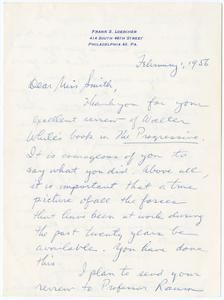 FRANK S. LOESCHER
414 SOUTH 48TH STREET
PHILADELPHIA 43, PA.
February 1, 1956
Dear Miss Smith,
Thank you for your
excellent review of Walter
White's book in The Progressive.
It is courageous of you to
say what you did. Above all,
it is important that a true
picture of all the forces
that have been at work during
the past twenty years be
available. You have done
this.
I plan to send your
review to Professor